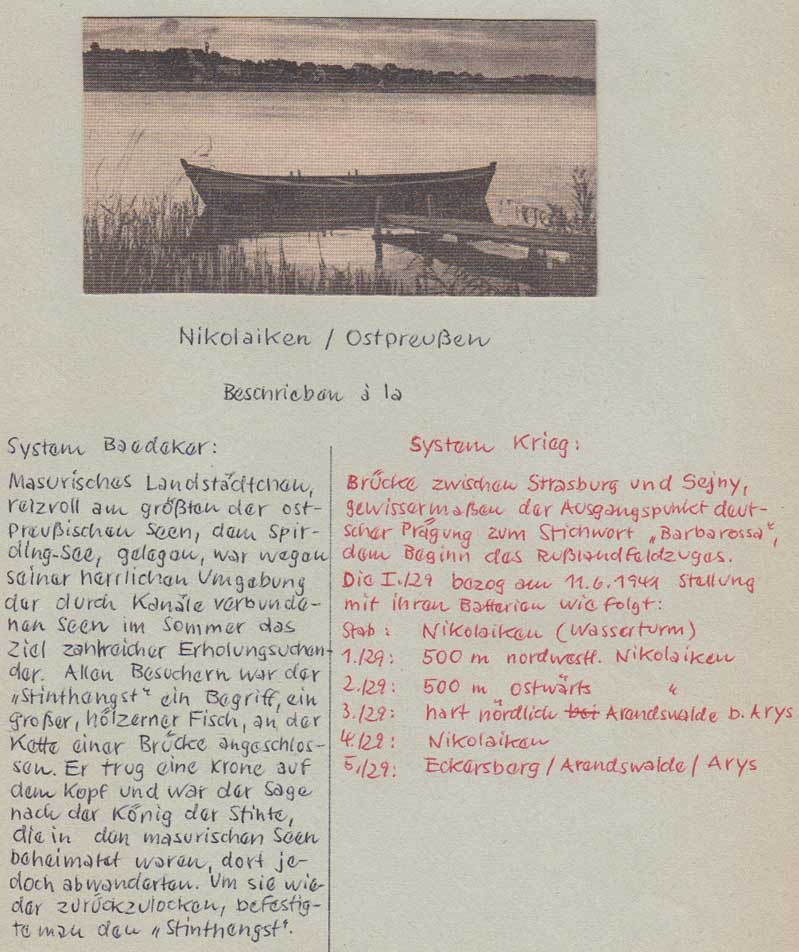 Nikolaiken / Ostpreußen
Beschrieben à la
System Baedeker:
Masurisches Landstädtchen,
reizvoll am größten der ost-
preußischen Seen, dem Spir-
ding-See, gelegen, war wegen
seiner herrlichen Umgebung
der durch Kanäle verbunde-
nen Seen im Sommer das
Ziel zahlreicher Erholungsuchen-
der. Allen Besuchern war der
„Stinthengst“ ein Begriff, ein
großer, hölzerner Fisch, an der
Kette einer Brücke angeschlos-
sen. Er trug eine Krone auf
dem Kopf und war der Sage
nach der König der Stinte,
die in den masurischen Seen
beheimatet waren, dort je-
doch abwanderten. Um sie wie-
der zurückzulocken, befestig-
te man den „Stinthengst“.
System Krieg:
Brücke zwischen Strasburg und Sejny,
gewissermaßen der Ausgangspunkt deut-
scher Prägung zum Stichwort „Barbarossa“,
dem Beginn des Rußlandfeldzuges.
Die I./29 bezog am 11.6.1941 Stellung
mit ihren Batterien wie folgt:
Stab: Nikolaiken (Wasserturm)
1./29: 500 m nordwestl. Nikolaiken
2./29: 500 m ostwärts "
3./29: hart nördlich bei Arendswalde b. Arys
4./29: Nikolaiken
5./29: Eckersberg / Arendswalde / Arys